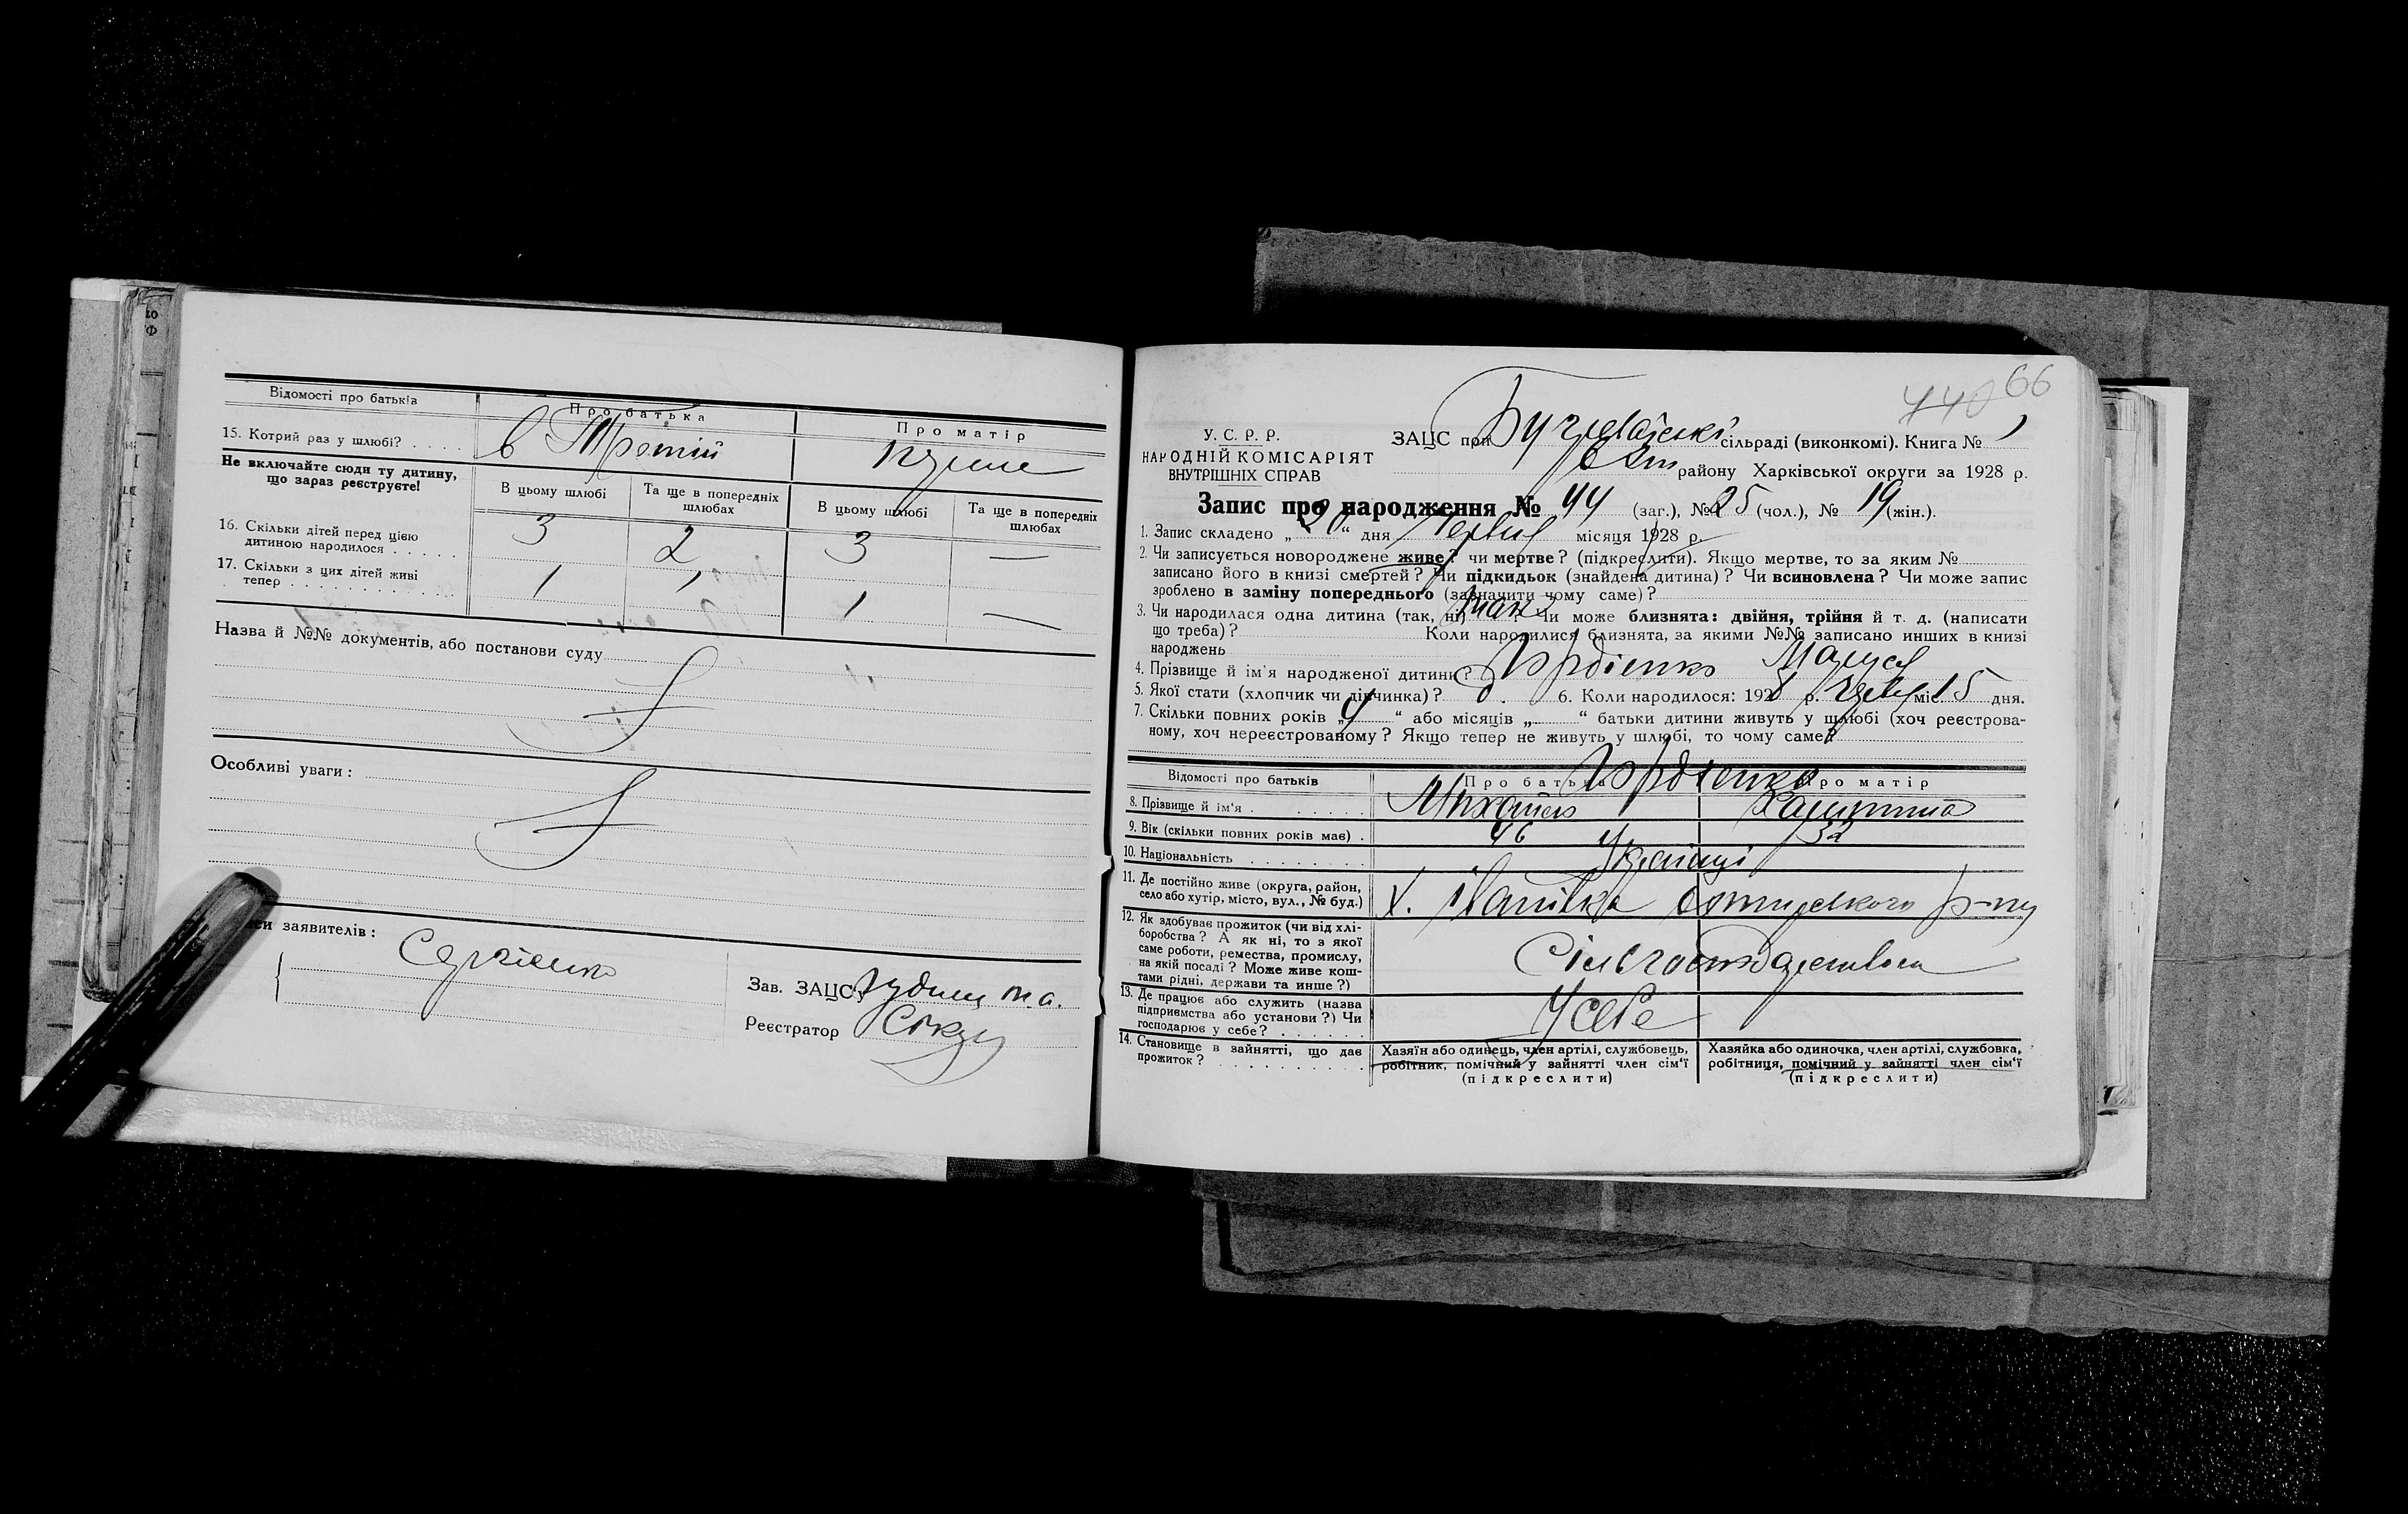 Відомості про батьків
Про батька
Про матір
15. Котрий раз у шлюбі? . . . .
в Третій
Не включайте сюди ту дитину,
що зараз реєструєте!
В цьому шлюбі
Та ще в попередніх
шлюбах
В цьому шлюбі
Та ще в попередніх
шлюбах
16. Скільки дітей перед цією
дитиною народилося . . . . .
3
2
3
—
17. Скільки з цих дітей живі
тепер . . . . . . . . . . .
1
1
1
—
Назва й №№ документів, або постанови суду
Особливі уваги :
заявителів :
Сергієнко
Зав. ЗАЦС
Реєстратор
440 66
У. С. Р. Р.
НАРОДНІЙ КОМІСАРІЯТ
ВНУТРІШНІХ СПРАВ
ЗАЦС при сільраді (виконкомі). Книга № 1
району Харківської округи за 1928 р.
Запис про народження № 44 (заг.), № 25 (чол.), № 19 (жін.).
1. Запис складено „20“ дня Червня місяця 1928 р.
2. Чи записується новороджене живе? чи мертве? (підкреслити). Якщо мертве, то за яким №
записано його в книзі смертей? Чи підкидьок (знайдена дитина)? Чи всиновлена? Чи може запис
зроблено в заміну попереднього (зазначити чому саме)?
3. Чи народилася одна дитина (так, ні) так ? Чи може близнята: двійня, трійня й т. д. (написати
що треба)? Коли народилися близнята, за якими №№ записано инших в книзі
народжень
4. Прізвище й ім'я народженої дитини? Гордієнко Маруся
5. Якої стати (хлопчик чи дівчинка)? д. 6. Коли народилося: 1928 р. черв міс. 15 дня.
7. Скільки повних років „4“ або місяців „ “ батьки дитини живуть у шлюбі (хоч реєстрова-
ному, хоч нереєстрованому? Якщо тепер не живуть у шлюбі, то чому саме?
Відомості про батьків
Про батька
Про матір
Гордієнко
8. Прізвище й ім'я . . . . . . .
Михайло
9. Вік (скільки повних років має) .
46
32
10. Національність . . . . . . . .
Українці
11. Де постійно живе (округа, район,
село або хутір, місто, вул., № буд.)
х. Іванівка р-ну
12. Як здобуває прожиток (чи від хлі-
боробства? А як ні, то з якої
саме роботи, ремества, промислу,
на якій посаді? Може живе кош-
тами рідні, держави та инше?)
13. Де працює або служить (назва
підприємства або установи?) Чи
господарює у себе? . . . . . .
У себе
14. Становище в зайнятті, що дає
прожиток? . . . . . . . . . .
Хазяїн або одинець, член артілі, службовець,
робітник, помічний у зайнятті член сім'ї
(підкреслити)
Хазяйка або одиночка, член артілі, службовка,
робітниця, помічний у зайнятті член сім'ї
(підкреслити)